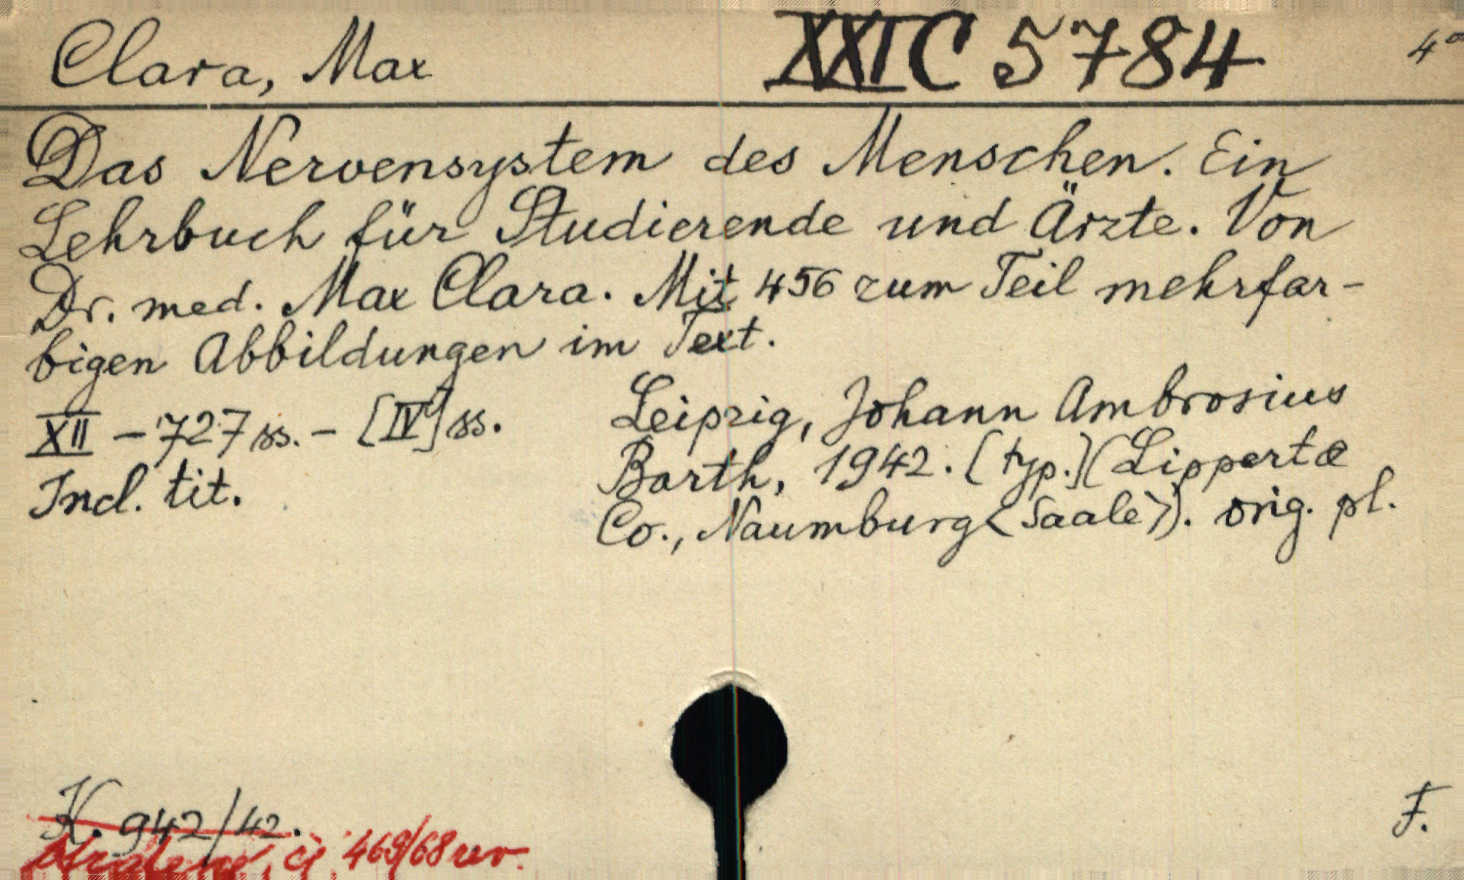 Clara, Max XXI C 5784 4°
Das Nervensystem des Menschen. Ein
Lehrbuch für Studierende und Ärzte. Von
Dr. med. Max Clara. Mit 456 zum Teil mehrfar-
bigen Abbildungen im Text.
XII – 727 ss. – [IV] ss.
Incl. tit.
Leipzig, Johann Ambrosius
Barth, 1942. [typ.] (Lippert &
Co., Naumburg <Saale>). orig. pl.
K. 942/42.
čj. 469/68 rev.
F.